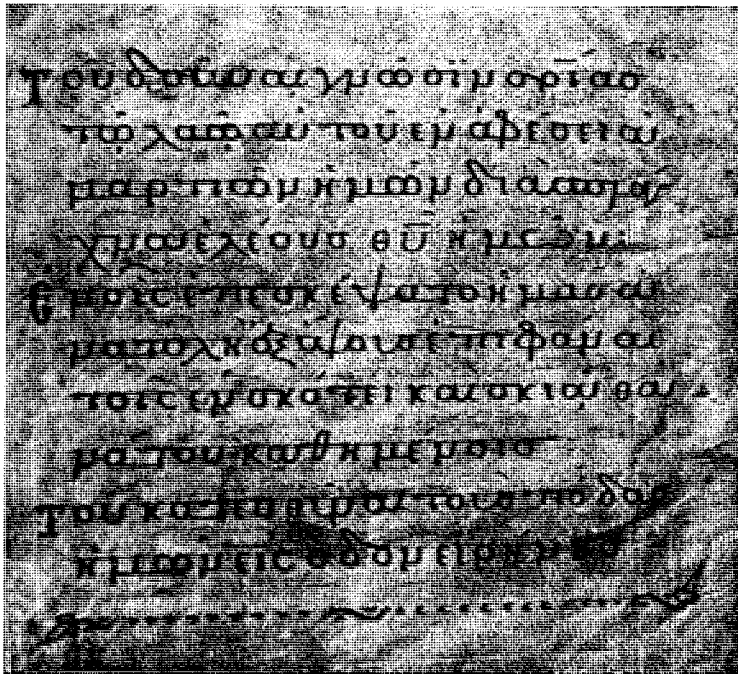 Τοῦ δοῦναι γνῶσϊν σρ̅ίας
τῷ λαῷ αὐτοῦ ἐν ἀφέσει ἁ
μαρτιῶν ἡμῶν διὰ σπλά
γχνα ἐλέους θ̅υ̅ ἡμῶν·
Ἐν οἷς ἐπεσκέψατο ἡμᾶς ἀ
νατολὴ ἐξ ὕψους ἐπιφᾶναι
τοῖς ἐν σκότει καὶ σκιᾷ θα
νάτου καθημένοις
Τοῦ κατευθῦναι τοὺς πόδας
ἡμῶν εἰς ὁδὸν εἰρήνης